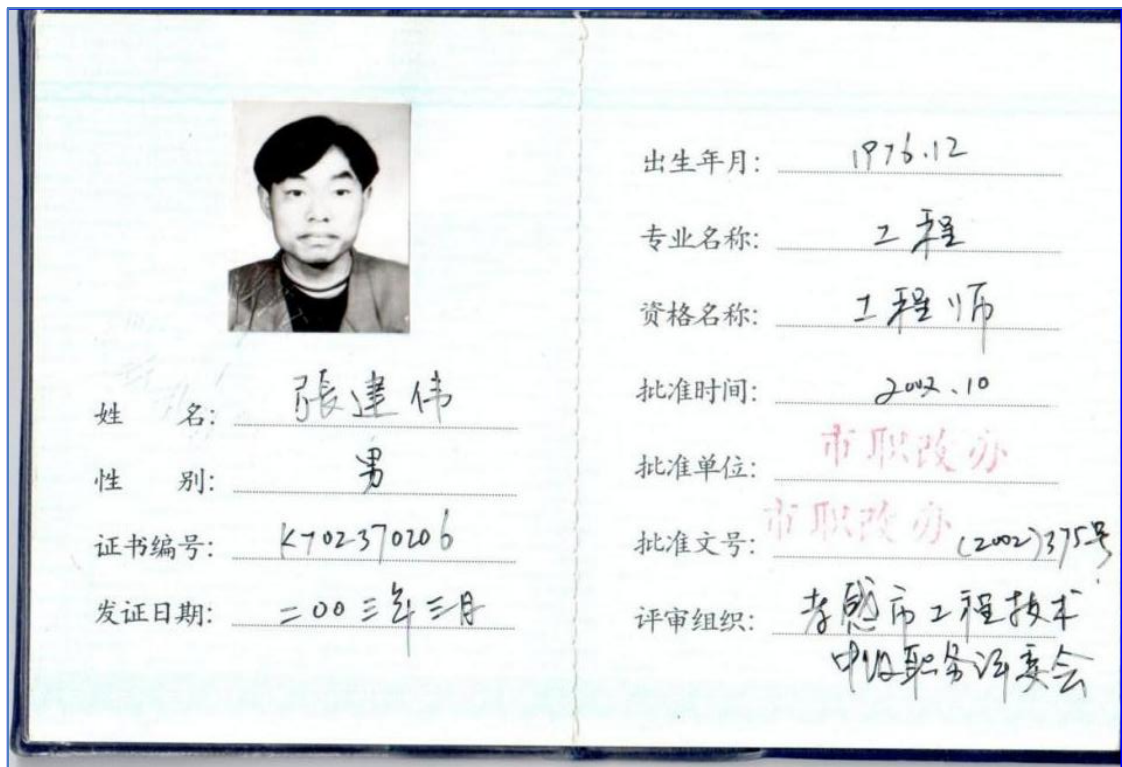 姓 名: 張建伟
性 别: 男
证书编号: K702370206
发证日期: 二00三年三月
出生年月: 1976.12
专业名称: 工程
资格名称: 工程师
批准时间: 2002.10
批准单位: 市职改办
批准文号: 市职改办 (2002)375号
评审组织: 孝感市工程技术
中级职务评委会